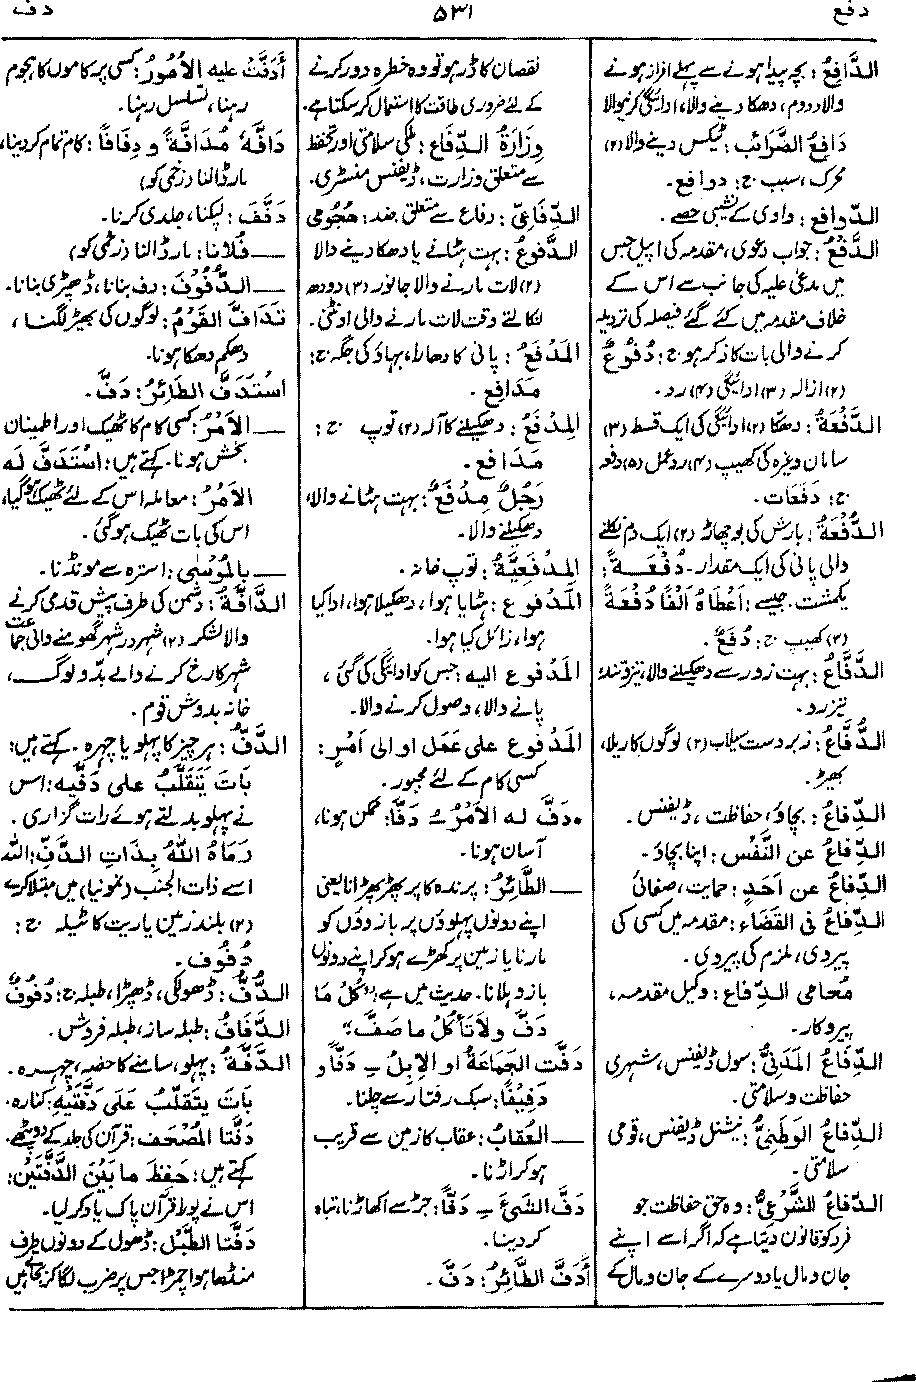 دفع
۵۳۱
دف
الدَّافِعُ: بچہ پیدا ہونے سے پہلے افراز ہونے
والا دودھ، دھکا دینے والا، ادائیگی کرنیوالا
دَافِعُ الضَّرائب: ٹیکس دینے والا (۲)
محرک، سبب ج: دوافع۔
الدَّوافع: وادی کے نشیبی حصے۔
الدَّفْعُ: جواب دعوی، مقدمہ کی اپیل جس
میں مدعی علیہ کی جانب سے اس کے
خلاف مقدمہ میں کئے گئے فیصلہ کی تردید
کرنے والی بات کا ذکر ہو ج: دُفُوعٌ
(۲) ازالہ (۳) ادائیگی (۴) رد۔
الدَّفْعَةُ: دھکا (۲) ادائیگی کی ایک قسط (۳)
سامان وغیرہ کی کھیپ (۴) ردعمل (۵) دفعہ
ج: دَفَعَات۔
الدُّفْعَةُ: بارش کی بوچھاڑ (۲) ایک دم نکلنے
والی پانی کی ایک مقدار۔ دُفْعَـــةً:
یکمشت۔ جیسے: أعْطَاهُ أَلْفًا دُفْعَةً
(۳) کھیپ ج: دُفَعٌ۔
الدَّفَّاعُ: بہت زور سے دھکیلنے والا، تیز و تند،
تیز رو۔
الدُّفَّاعُ: زبردست سیلاب (۲) لوگوں کا ریلا،
بھیڑ۔
الدِّفَاعُ: بچاؤ، حفاظت، ڈیفنس۔
الدِّفاعُ عن النَّفْسِ: اپنا بچاؤ۔
الدِّفاعُ عن أحَدٍ: حمایت، صفائی
الدِّفاعُ فى القَضَاء: مقدمہ میں کسی کی
پیروی، ملزم کی پیروی۔
مُحامى الدِّفاع: وکیل مقدمہ،
پیروکار۔
الدِّفاعُ المَدَنِىُّ: سول ڈیفنس، شہری
حفاظت و سلامتی۔
الدِّفاعُ الوَطَنِىُّ: نیشنل ڈیفنس، قومی
سلامتی۔
الدِّفاعُ الشَّرْعِىُّ: وہ حق حفاظت جو
فرد کو قانون دیتا ہے کہ اگر اسے اپنے
جان و مال یا دوسرے کے جان و مال کے
نقصان کا ڈر ہو تو وہ خطرہ دور کرنے
کے لئے ضروری طاقت کا استعمال کرسکتا ہے۔
وِزَارَةُ الدِّفَاع: ملکی سلامتی اور تحفظ
سے متعلق وزارت، ڈیفنس منسٹری۔
الدِّفَاعِىّ: دفاع سے متعلق ضد: هُجُومِى
الدَّفُوعُ: بہت ہٹانے یا دھکا دینے والا
(۲) لات مارنے والا جانور (۳) دودھ
نکالتے وقت لات مارنے والی اونٹنی۔
المَدْفَعُ: پانی کا دھارا، بہاؤ کی جگہ ج:
مَدَافِع۔
المِدْفَعُ: دھکیلنے کا آلہ (۲) توپ ج:
مَدَافِع۔
رَجُلٌ مِدْفَعٌ: بہت ہٹانے والا،
دھکیلنے والا۔
المِدْفَعِيَّةُ: توپ خانہ۔
المَدْفوع: ہٹایا ہوا، دھکیلا ہوا، ادا کیا
ہوا، زائل کیا ہوا۔
المَدْفوع اليه: جس کو ادائیگی کی گئی،
پانے والا، وصول کرنے والا۔
المَدْفوع على عَمَل او الى أمْرٍ:
کسی کام کے لئے مجبور۔
•دَفَّ له الأمْرُ ـُ دَفًّا: ممکن ہونا،
آسان ہونا۔
ـــ الطَّائرُ: پرندہ کا پر پھڑپھڑانا یعنی
اپنے دونوں پہلوؤں پر بازوؤں کو
مارنا یا زمین پر کھڑے ہوکر اپنے دونوں
بازو ہلانا۔ حدیث میں ہے: "كُلْ مَا
دَفَّ ولا تَأكُلْ ما صَفَّ"
دَفَّت الجَمَاعَةُ او الإبِلُ ـِ دَفًّا و
دَفِيْفًا: سبک رفتار سے چلنا۔
ـــ العُقَابُ: عقاب کا زمین سے قریب
ہوکر اڑنا۔
دَفَّ الشَّىءَ ـِ دَفًّا: جڑ سے اکھاڑنا، تباہ
کردینا۔
أَدَفَّ الطَّائِرُ: دَفَّ۔
أَدَفَّتْ عليه الأمُورُ: کسی پر کاموں کا ہجوم
رہنا، تسلسل رہنا۔
دَافَّهُ مُدَافَّةً و دِفَافًا: کام تمام کردینا،
مارڈالنا (زخمی کو)
دَفَّفَ: لپکنا، جلدی کرنا۔
ـــ فُلانًا: مارڈالنا (زخمی کو)
ـــ الدُّفُوفَ: دف بنانا، ڈھپڑی بنانا۔
تَدَافَّ القَوْمُ: لوگوں کی بھیڑ لگنا،
دھکم دھکا ہونا۔
اسْتَدَفَّ الطَّائِرُ: دَفَّ۔
ـــ الأمْرُ: کسی کام کا ٹھیک اور اطمینان
بخش ہونا۔ کہتے ہیں: اسْتَدَفَّ لَه
الأمْرُ: معاملہ اس کے لئے ٹھیک ہوگیا،
اس کی بات ٹھیک ہوگئی۔
ـــ بالمُوْسٰى: استرہ سے مونڈنا۔
الدَّافَّةُ: دشمن کی طرف پیش قدمی کرنے
والا لشکر (۲) شہر در شہر گھومنے والی جماعت
شہر کا رخ کرنے والے بدّو لوگ،
خانہ بدوش قوم۔
الدَّفُّ: ہر چیز کا پہلو یا چہرہ۔ کہتے ہیں:
بَاتَ يَتَقَلَّبُ على دَفَّيه: اس
نے پہلو بدلتے ہوئے رات گزاری۔
رَمَاهُ اللهُ بِذَاتِ الدَّفِّ: اللہ
اسے ذات الجنب (نمونیا) میں مبتلا کرے
(۲) بلند زمین یا ریت کا ٹیلہ ج:
دُفُوف۔
الدُّفُّ: ڈھولکی، ڈھپڑا، طبلہ ج: دُفُوفٌ
الدَّفَّافُ: طبلہ ساز، طبلہ فروش۔
الدَّفَّةُ: پہلو، سامنے کا حصہ، چہرہ۔
بَاتَ يتَقَلَّبُ عَلَى دَفَّتَيْهِ: کنارہ۔
دَفَّتا المُصْحَف: قرآن کی جلد کے دو پٹھے۔
کہتے ہیں: حَفِظَ ما بَيْنَ الدَّفَّتَيْن:
اس نے پورا قرآن پاک یاد کرلیا۔
دَفَّتا الطَّبْل: ڈھول کے دونوں طرف
منڈھا ہوا چمڑا جس پر ضرب لگا کر بجاتے ہیں